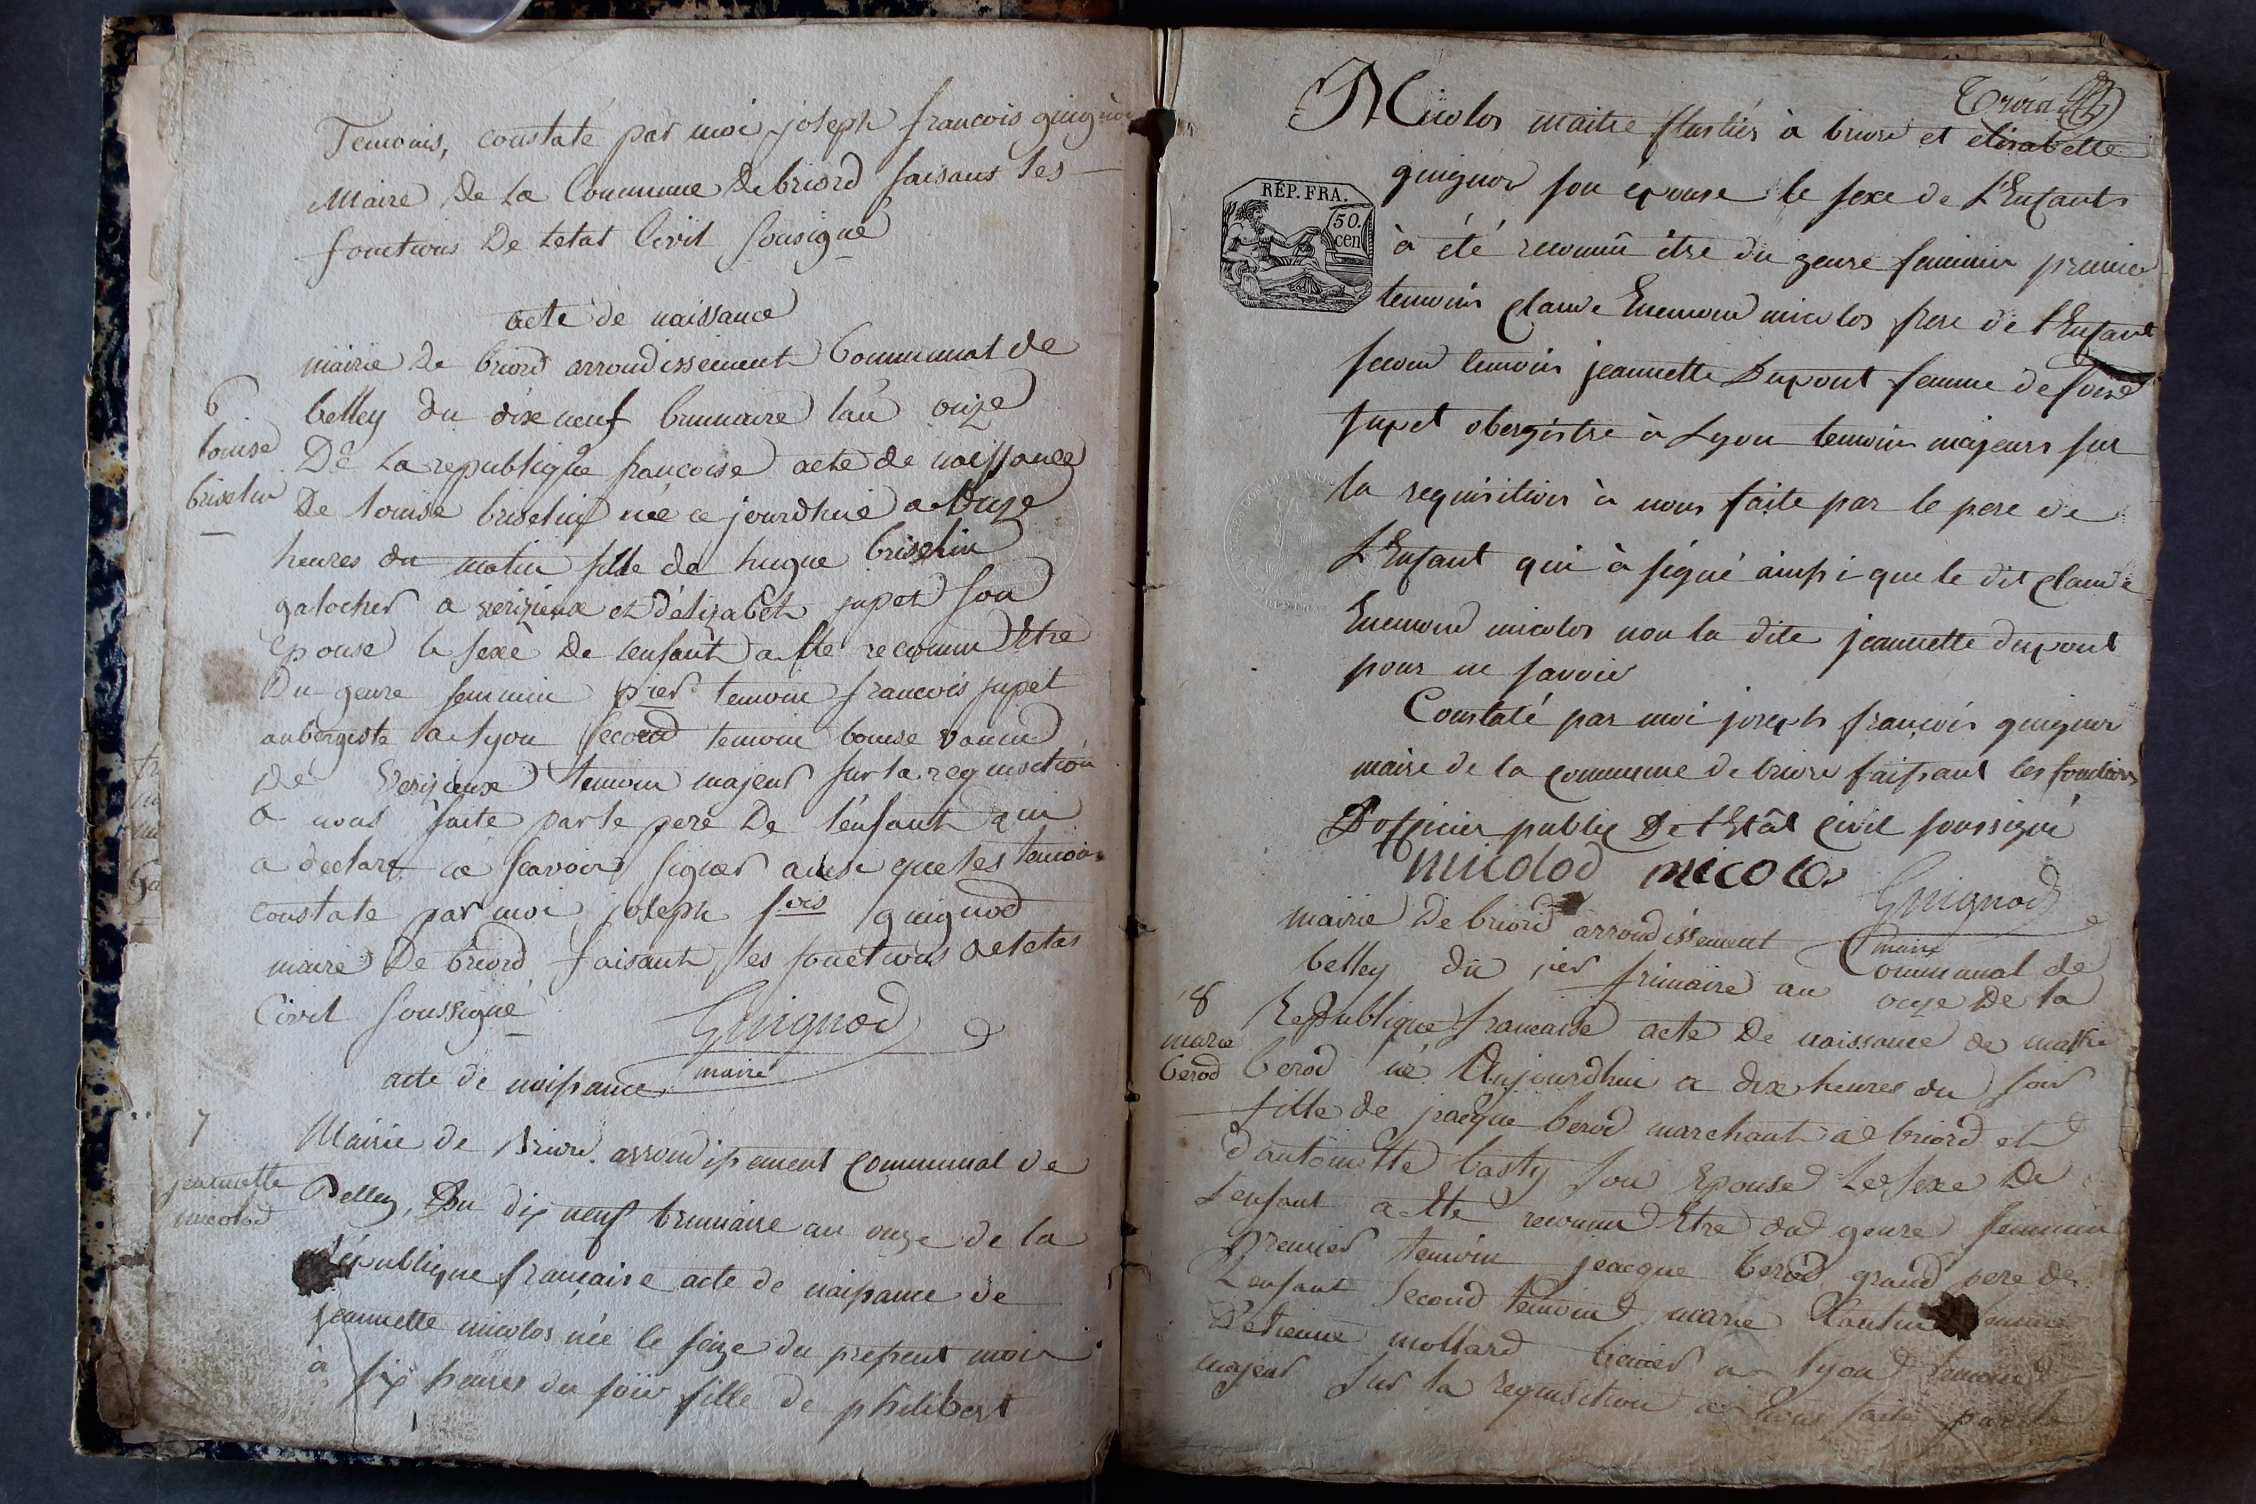 Temoins, constaté par moi joseph francois guignod
Maire De La Commune De briord faisant les
fonctions De Letat Civil sousigné
acte de naissance
mairie De briord arrondissement Communal de
6
belley du dixneuf brumaire l'an onze
louise
briselin
De La republique francoise acte de naissance
De louise briselin née ce jourdhuié a onze
heures du matin fille de hugue briselin
galocher a verizieux et d'élizabeth jupet son
epouse le sexe De lenfant a ette reconnu Etre
Du genre feminin pier temoin francois jupet
aubergiste a Lyon second temoin louise
De Verizieux temoin majeur sur la requisition
a nous faite par le pere De l'enfant qui
a declaré ne scavoir signer ainsi que les temoins
constate par moi joseph fois guignod
maire De briord faisant les fonctions de letat
Civil soussigné
Guignod
maire
acte de naissance
7
jeannette
micolod
Mairie de Briord arrondissement communal de
Belley, Du dix neuf brumaire an onze de la
république française acte de naissance de
jeannette micolos née le seize du present mois
à six heures du soir fille de philibert
Micolos maitre à briord et elisabette
guignod son epouse le sexe de L'Enfant
RÉP. FRA.
50.
cen
à été reconnu être du genre feminin premier
temoin claude Enemond micolos frere de l'Enfant
second temoin jeannette Dupont femme de
jupet obergistre à Lyon temoin majeurs sur
la requisition à nous faite par le pere de
L'Enfant qui à signé ainsi que le dit claude
Enemond micolos non la dite jeannette dupont
pour ne savoir
Constaté par moi joseph françois guignod
maire de la commune de briord faissant les fonctions
D'officier public De l'Etât civil soussigné
micolod micolos
Guignod
maire
mairie De briord arrondissement Communal de
belley du pier frimaire an onze De la
8
marie
berod
Republique francaise acte De naissance de marie
berod né Aujourdhui a dix heures du soir
fille de jacque berod marchant a briord et
d'antoinette basty son Epouse Le sexe De
L'enfant a ette reconnu Etre du genre feminin
Premier temoin jeacque berod grand pere de
L'enfant second temoin marie femme
D'etienne mollard a lyon temoin
majeur sur la requisition a nous faite par le